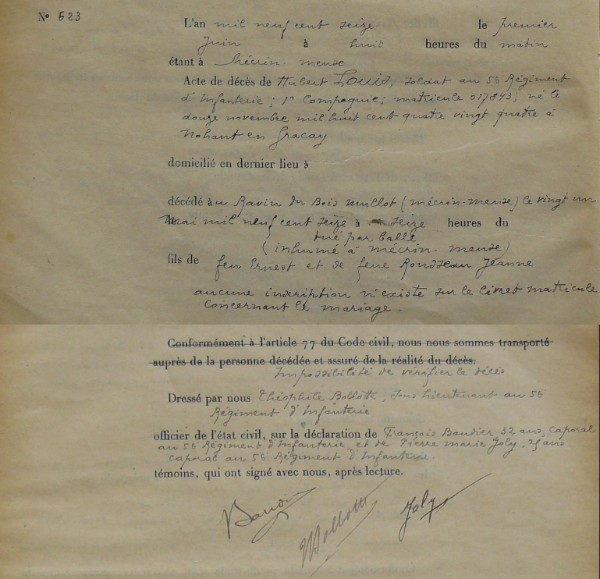 N° 523
L'an mil neuf cent seize le premier
Juin à huit heures du matin
étant à Mécrin-meuse
Acte de décès de Hubert Louis, soldat au 56 Régiment
d'Infanterie; 1e Compagnie; matricule 017843, né le
douze novembre mil huit cent quatre vingt quatre à
Nohant en Gracay
domicilié en dernier lieu à
décédé au Ravin du Bois mullot (mécrin-meuse) le vingt un
mai mil neuf cent seize à seize heures du
tué par balle
(inhumé à mécrin-meuse)
fils de feu Ernest et de feue Rousseau Jeanne
aucune inscription n'existe sur le livret matricule
concernant le mariage.
Conformément à l'article 77 du Code civil, nous nous sommes transporté
auprès de la personne décédée et assuré de la réalité du décès.
Impossibilité de vérifier le décès
Dressé par nous Théophile Sous Lieutenant au 56
Régiment d'Infanterie
officier de l'état civil, sur la déclaration de François Baudier 32 ans, caporal
au 56 Régiment d'Infanterie et de Pierre marie Joly, 25 ans
caporal au 56 Régiment d'Infanterie
témoins, qui ont signé avec nous, après lecture.
Joly